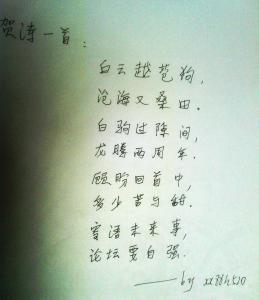 贺涛一首:
白云越苍狗,
沧海又桑田.
白驹过隙间,
龙腾两周年.
顾盼回首中,
多少苦与甜.
寄语未来事,
论坛要自强.
——by